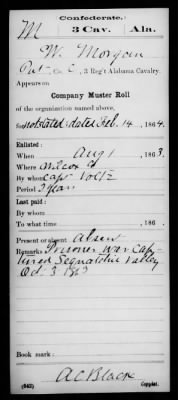 Confederate.
M 3 Cav. Ala.
W. Morgan
Pvt, Co. C, 3 Reg't Alabama Cavalry.
Appears on
Company Muster Roll
of the organization named above,
for not stated dated Feb. 14, 1864.
Enlisted:
When Aug 1, 1863.
Where Wilcox Co
By whom Capt
Period 3 years
Last paid:
By whom
To what time , 186 .
Present or absent Absent
Remarks Prisoner War Cap-
tured Sequatchie Valley
Oct. 3 1863
Book mark:
(642) A C Black
Copyist.